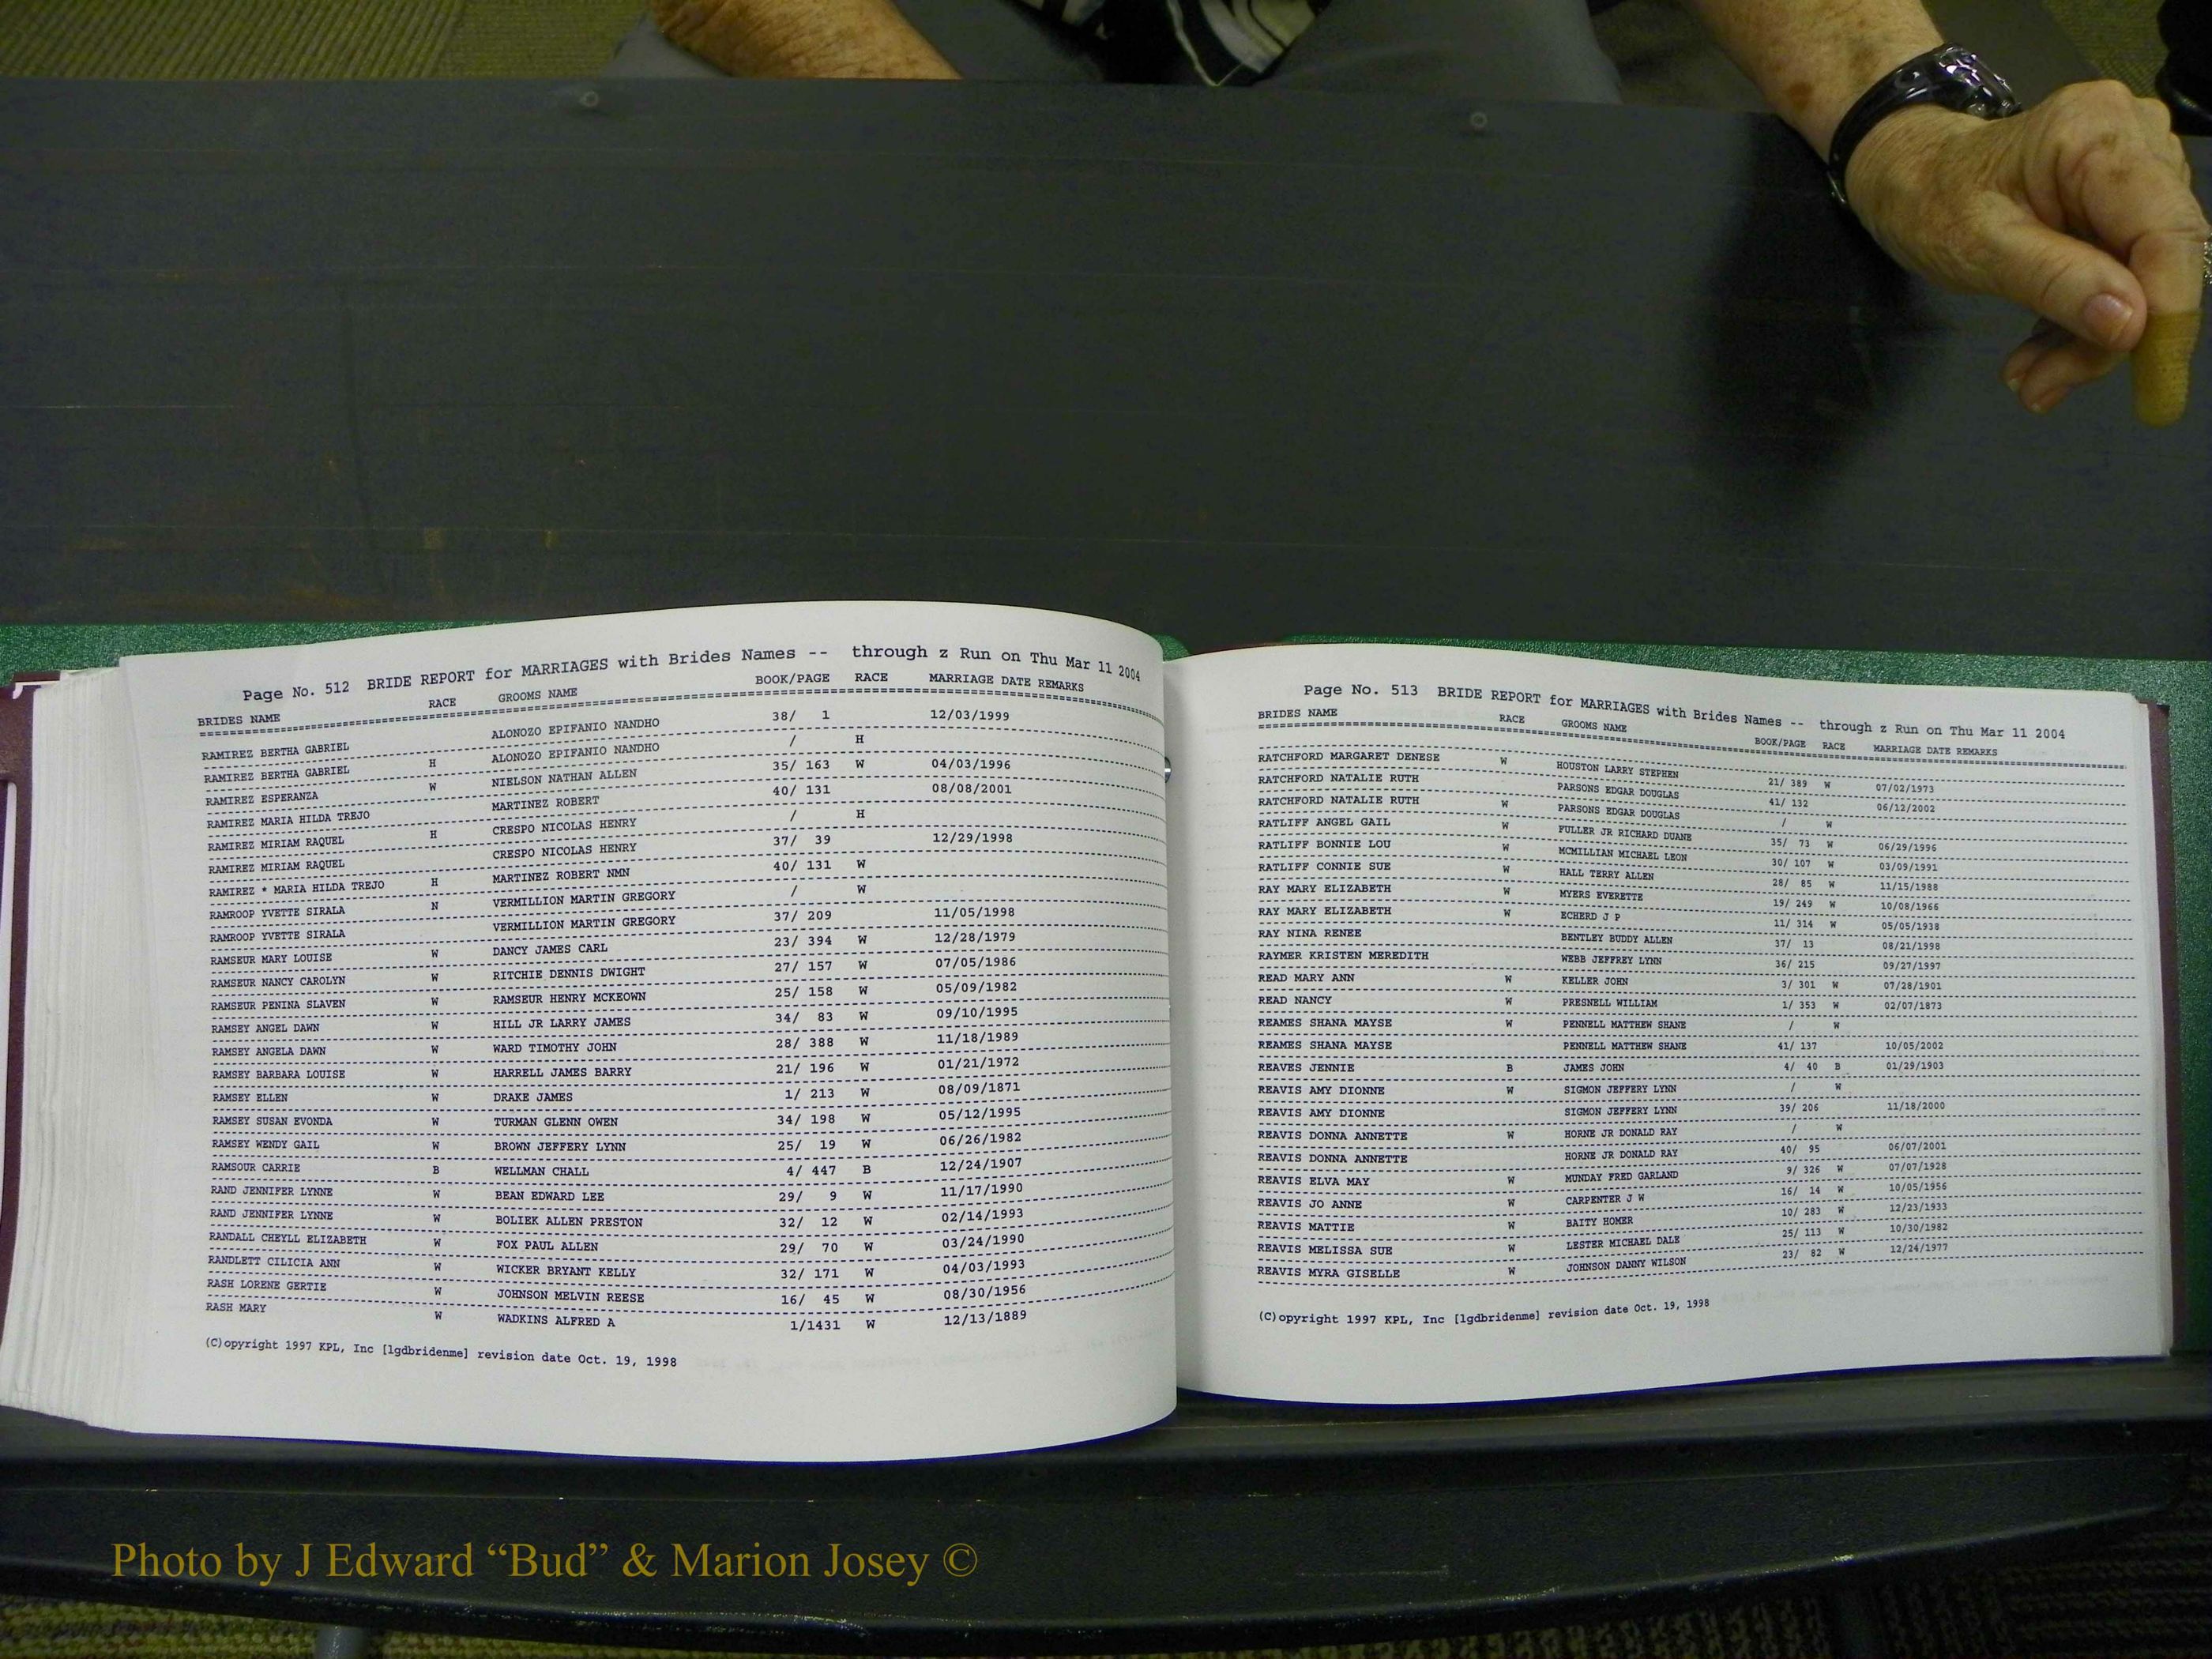 Page No. 512 BRIDE REPORT for MARRIAGES with Brides Names -- through z Run on Thu Mar 11 2004
BRIDES NAME RACE GROOMS NAME BOOK/PAGE RACE MARRIAGE DATE REMARKS
RAMIREZ BERTHA GABRIEL ALONOZO EPIFANIO NANDHO 38/ 1 12/03/1999
RAMIREZ BERTHA GABRIEL H ALONOZO EPIFANIO NANDHO / H
RAMIREZ ESPERANZA W NIELSON NATHAN ALLEN 35/ 163 W 04/03/1996
RAMIREZ MARIA HILDA TREJO MARTINEZ ROBERT 40/ 131 08/08/2001
RAMIREZ MIRIAM RAQUEL H CRESPO NICOLAS HENRY / H
RAMIREZ MIRIAM RAQUEL CRESPO NICOLAS HENRY 37/ 39 12/29/1998
RAMIREZ * MARIA HILDA TREJO H MARTINEZ ROBERT NMN 40/ 131 W
RAMROOP YVETTE SIRALA N VERMILLION MARTIN GREGORY / W
RAMROOP YVETTE SIRALA VERMILLION MARTIN GREGORY 37/ 209 11/05/1998
RAMSEUR MARY LOUISE W DANCY JAMES CARL 23/ 394 W 12/28/1979
RAMSEUR NANCY CAROLYN W RITCHIE DENNIS DWIGHT 27/ 157 W 07/05/1986
RAMSEUR PENINA SLAVEN W RAMSEUR HENRY MCKEOWN 25/ 158 W 05/09/1982
RAMSEY ANGEL DAWN W HILL JR LARRY JAMES 34/ 83 W 09/10/1995
RAMSEY ANGELA DAWN W WARD TIMOTHY JOHN 28/ 388 W 11/18/1989
RAMSEY BARBARA LOUISE W HARRELL JAMES BARRY 21/ 196 W 01/21/1972
RAMSEY ELLEN W DRAKE JAMES 1/ 213 W 08/09/1871
RAMSEY SUSAN EVONDA W TURMAN GLENN OWEN 34/ 198 W 05/12/1995
RAMSEY WENDY GAIL W BROWN JEFFERY LYNN 25/ 19 W 06/26/1982
RAMSOUR CARRIE B WELLMAN CHALL 4/ 447 B 12/24/1907
RAND JENNIFER LYNNE W BEAN EDWARD LEE 29/ 9 W 11/17/1990
RAND JENNIFER LYNNE W BOLIEK ALLEN PRESTON 32/ 12 W 02/14/1993
RANDALL CHEYLL ELIZABETH W FOX PAUL ALLEN 29/ 70 W 03/24/1990
RANDLETT CILICIA ANN W WICKER BRYANT KELLY 32/ 171 W 04/03/1993
RASH LORENE GERTIE W JOHNSON MELVIN REESE 16/ 45 W 08/30/1956
RASH MARY W WADKINS ALFRED A 1/1431 W 12/13/1889
(C)opyright 1997 KPL, Inc [lgdbridenme] revision date Oct. 19, 1998
Page No. 513 BRIDE REPORT for MARRIAGES with Brides Names -- through z Run on Thu Mar 11 2004
BRIDES NAME RACE GROOMS NAME BOOK/PAGE RACE MARRIAGE DATE REMARKS
RATCHFORD MARGARET DENESE W HOUSTON LARRY STEPHEN 21/ 389 W 07/02/1973
RATCHFORD NATALIE RUTH PARSONS EDGAR DOUGLAS 41/ 132 06/12/2002
RATCHFORD NATALIE RUTH W PARSONS EDGAR DOUGLAS / W
RATLIFF ANGEL GAIL W FULLER JR RICHARD DUANE 35/ 73 W 06/29/1996
RATLIFF BONNIE LOU W MCMILLIAN MICHAEL LEON 30/ 107 W 03/09/1991
RATLIFF CONNIE SUE W HALL TERRY ALLEN 28/ 85 W 11/15/1988
RAY MARY ELIZABETH W MYERS EVERETTE 19/ 249 W 10/08/1966
RAY MARY ELIZABETH W ECHERD J P 11/ 314 W 05/05/1938
RAY NINA RENEE BENTLEY BUDDY ALLEN 37/ 13 08/21/1998
RAYMER KRISTEN MEREDITH WEBB JEFFREY LYNN 36/ 215 09/27/1997
READ MARY ANN W KELLER JOHN 3/ 301 W 07/28/1901
READ NANCY W PRESNELL WILLIAM 1/ 353 W 02/07/1873
REAMES SHANA MAYSE W PENNELL MATTHEW SHANE / W
REAMES SHANA MAYSE PENNELL MATTHEW SHANE 41/ 137 10/05/2002
REAVES JENNIE B JAMES JOHN 4/ 40 B 01/29/1903
REAVIS AMY DIONNE W SIGMON JEFFERY LYNN / W
REAVIS AMY DIONNE SIGMON JEFFERY LYNN 39/ 206 11/18/2000
REAVIS DONNA ANNETTE W HORNE JR DONALD RAY / W
REAVIS DONNA ANNETTE HORNE JR DONALD RAY 40/ 95 06/07/2001
REAVIS ELVA MAY W MUNDAY FRED GARLAND 9/ 326 W 07/07/1928
REAVIS JO ANNE W CARPENTER J W 16/ 14 W 10/05/1956
REAVIS MATTIE W BAITY HOMER 10/ 283 W 12/23/1933
REAVIS MELISSA SUE W LESTER MICHAEL DALE 25/ 113 W 10/30/1982
REAVIS MYRA GISELLE W JOHNSON DANNY WILSON 23/ 82 W 12/24/1977
(C)opyright 1997 KPL, Inc [lgdbridenme] revision date Oct. 19, 1998
Photo by J Edward “Bud” & Marion Josey ©